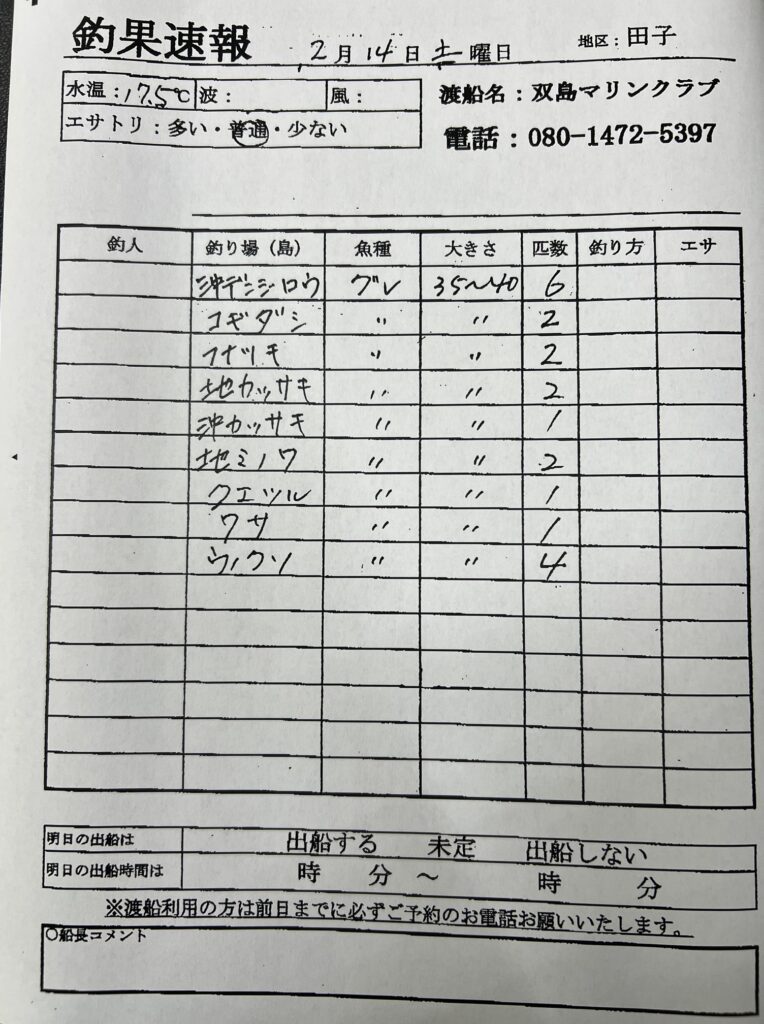 釣果速報 2月14日土曜日 地区：田子
水温：17.5℃ 波： 風： 渡船名：双島マリンクラブ
エサトリ：多い・普通・少ない 電話：080-1472-5397
釣人 釣り場（島） 魚種 大きさ 匹数 釣り方 エサ
沖デンジロウ グレ 35〜40 6
コギダシ 〃 〃 2
フナツキ 〃 〃 2
地カッサキ 〃 〃 2
沖カッサキ 〃 〃 1
地ミノワ 〃 〃 2
クエツル 〃 〃 1
ワサ 〃 〃 1
ウノクソ 〃 〃 4
明日の出船は 出船する 未定 出船しない
明日の出船時間は 時 分 〜 時 分
※渡船利用の方は前日までに必ずご予約のお電話お願いいたします。
○船長コメント